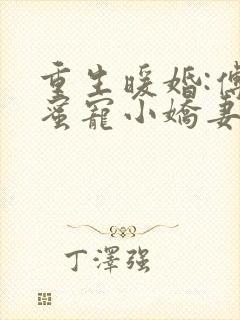 重生暖婚:傅
蜜寵小嬌妻
丁澤強